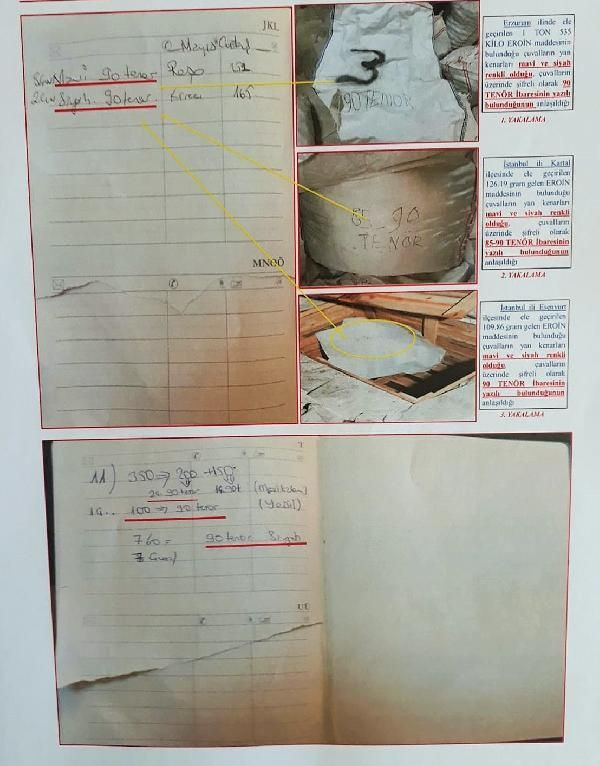 JKL
90 tenor
Siyah 90 tenor
MNOÖ
3
90 TENOR
85-90
TENOR
Erzurum ilinde ele
geçirilen 1 TON 535
KİLO EROİN maddesinin
bulunduğu çuvalların yan
kenarları mavi ve siyah
renkli olduğu, çuvalların
üzerinde şifreli olarak 90
TENÖR İbaresinin yazılı
bulunduğunun anlaşıldığı
1. YAKALAMA
İstanbul ili Kartal
ilçesinde ele geçirilen
126,19 gram gelen EROİN
maddesinin bulunduğu
çuvalların yan kenarları
mavi ve siyah renkli
olduğu, çuvalların
üzerinde şifreli olarak
85-90 TENÖR İbaresinin
yazılı bulunduğunun
anlaşıldığı
2. YAKALAMA
İstanbul ili Esenyurt
ilçesinde ele geçirilen
109,86 gram gelen EROİN
maddesinin bulunduğu
çuvalların yan kenarları
mavi ve siyah renkli
olduğu, çuvalların
üzerinde şifreli olarak
90 TENÖR İbaresinin
yazılı bulunduğunun
anlaşıldığı
3. YAKALAMA
T
11) 350 ⇒ 200 +150
90 tenor
100 ⇒ 90 tenor
760 = 90 tenor Siyah
UÜ